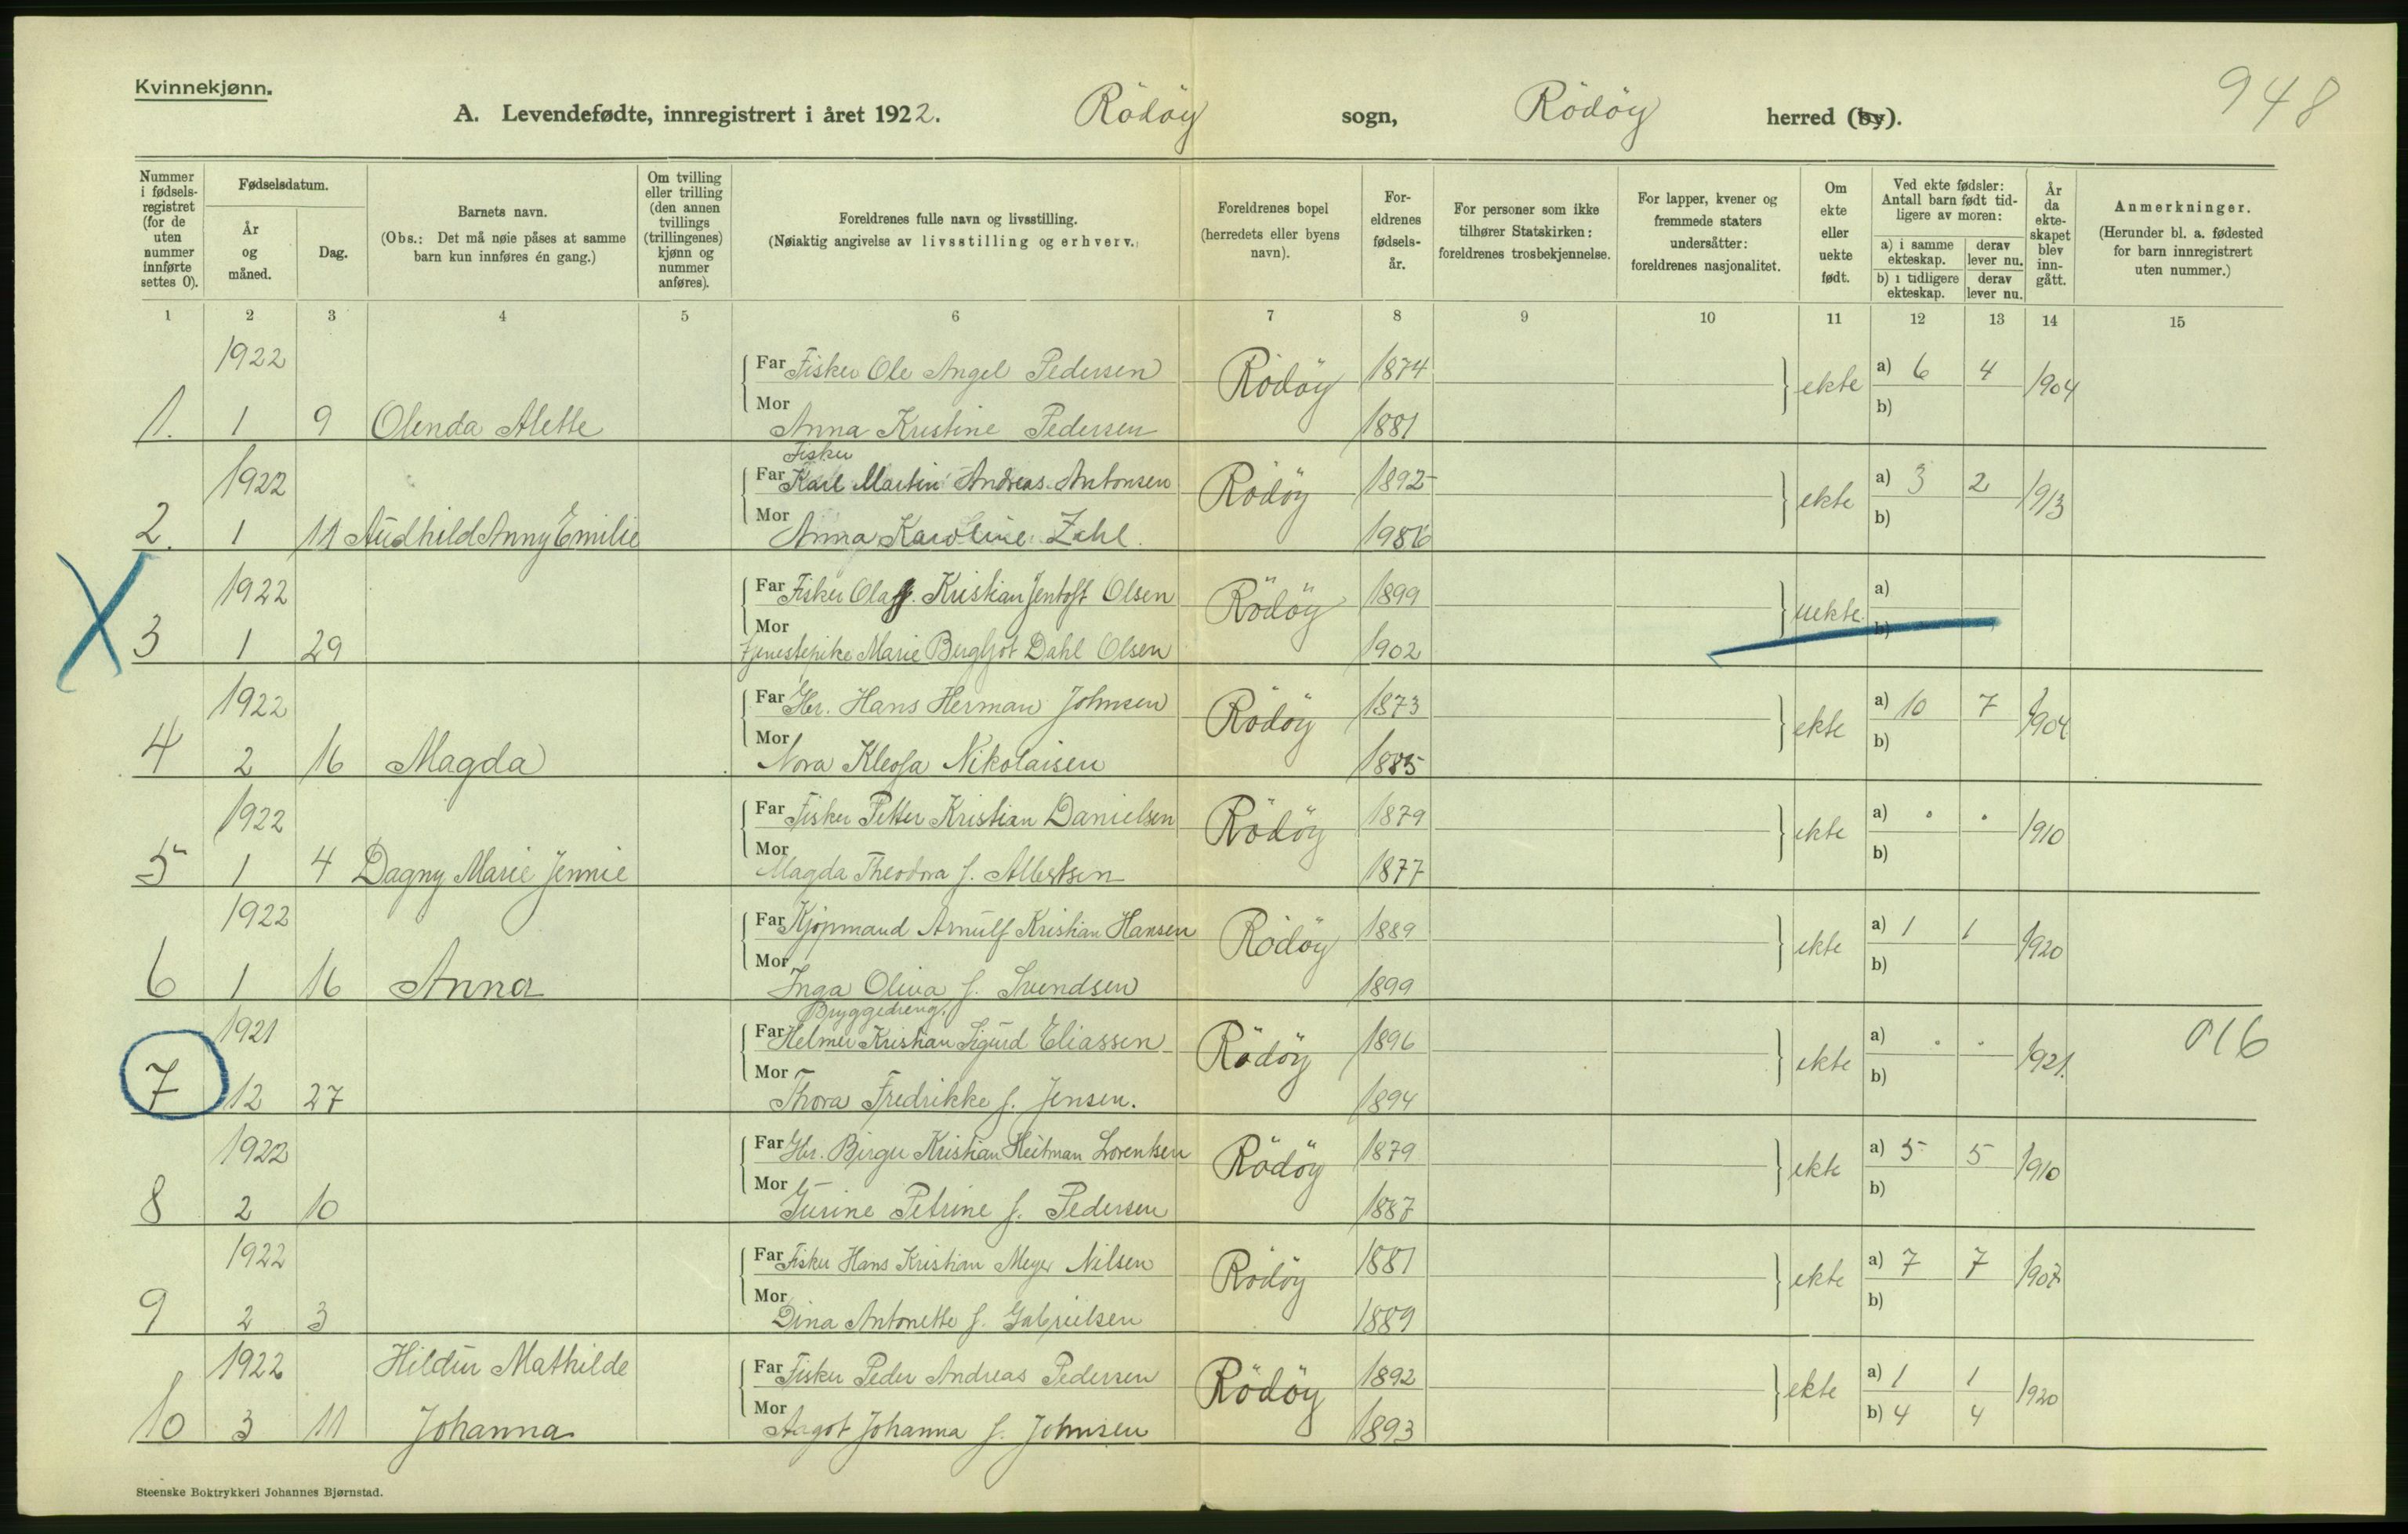 Kvinnekjønn.
A. Levendefødte, innregistrert i året 1922. Rödöy sogn, Rödöy herred (by). 948
Nummer i fødsels-registret (for de uten nummer innførte settes 0).
Fødselsdatum.
År og måned.
Dag.
Barnets navn.
(Obs.: Det må nøie påses at samme barn kun innføres én gang.)
Om tvilling eller trilling (den annen tvillings (trillingenes) kjønn og nummer anføres).
Foreldrenes fulle navn og livsstilling.
(Nøiaktig angivelse av livsstilling og erhverv.)
Foreldrenes bopel (herredets eller byens navn).
For-eldrenes fødsels-år.
For personer som ikke tilhører Statskirken: foreldrenes trosbekjennelse.
For lapper, kvener og fremmede staters undersåtter: foreldrenes nasjonalitet.
Om ekte eller uekte født.
Ved ekte fødsler: Antall barn født tid-ligere av moren:
a) i samme ekteskap.
derav lever nu.
b) i tidligere ekteskap.
derav lever nu.
År da ekte-skapet blev inn-gått.
Anmerkninger.
(Herunder bl. a. fødested for barn innregistrert uten nummer.)
1 2 3 4 5 6 7 8 9 10 11 12 13 14 15
1922 Far Fisker Ole Angel Pedersen Rödöy 1874 ekte a) 6 4 1904
1. 1 9 Olenda Alette Mor Anna Kristine Pedersen 1881 b)
Fisker
1922 Far Karl Martin Andreas Antonsen Rödöy 1892 ekte a) 3 2 1913
2. 1 11 Audhild Anny Emilie Mor Anna Karoline Zahl. 1986 b)
1922 Far Fisker Olaf Kristian Jentoft Olsen Rödöy 1899 uekte. a)
3 1 29 Mor tjenestepike Marie Bergljot Dahl Olsen 1902 b)
1922 Far Gbr. Hans Herman Johnsen Rödöy 1873 ekte a) 10 7 1904
4 2 16 Magda Mor Nora Kleofa Nikolaisen 1885 b)
1922 Far Fisker Petter Kristian Danielsen Rödöy 1879 ekte a) " " 1910
5 1 4 Dagny Marie Jennie Mor Magda Theodora f. Albertsen 1877 b)
1922 Far Kjøpmand Arnulf Kristian Hansen Rödöy 1889 ekte a) 1 1 1920
6 1 16 Anna Mor Inga Oliva f. Svendsen 1899 b)
Bryggedreng.
1921 Far Helmer Kristian Sigurd Eliassen Rödöy 1896 ekte a) " " 1921. 016
7 12 27 Mor Thora Fredrikke f. Jensen. 1894 b)
1922 Far Gbr. Birger Kristian Heitman Lorentsen Rödöy 1879 ekte a) 5 5 1910
8 2 10 Mor Gurine Petrine f. Pedersen 1887 b)
1922 Far Fisker Hans Kristian Meyer Nilsen Rödöy 1881 ekte a) 7 7 1907
9 2 3 Mor Dina Antonette f. Gabrielsen 1889 b)
1922 Hildur Mathilde Far Fisker Peder Andreas Pedersen Rödöy 1892 ekte a) 1 1 1920
10 3 11 Johanna Mor Aagot Johanna f. Johnsen 1893 b) 4 4
Steenske Boktrykkeri Johannes Bjørnstad.